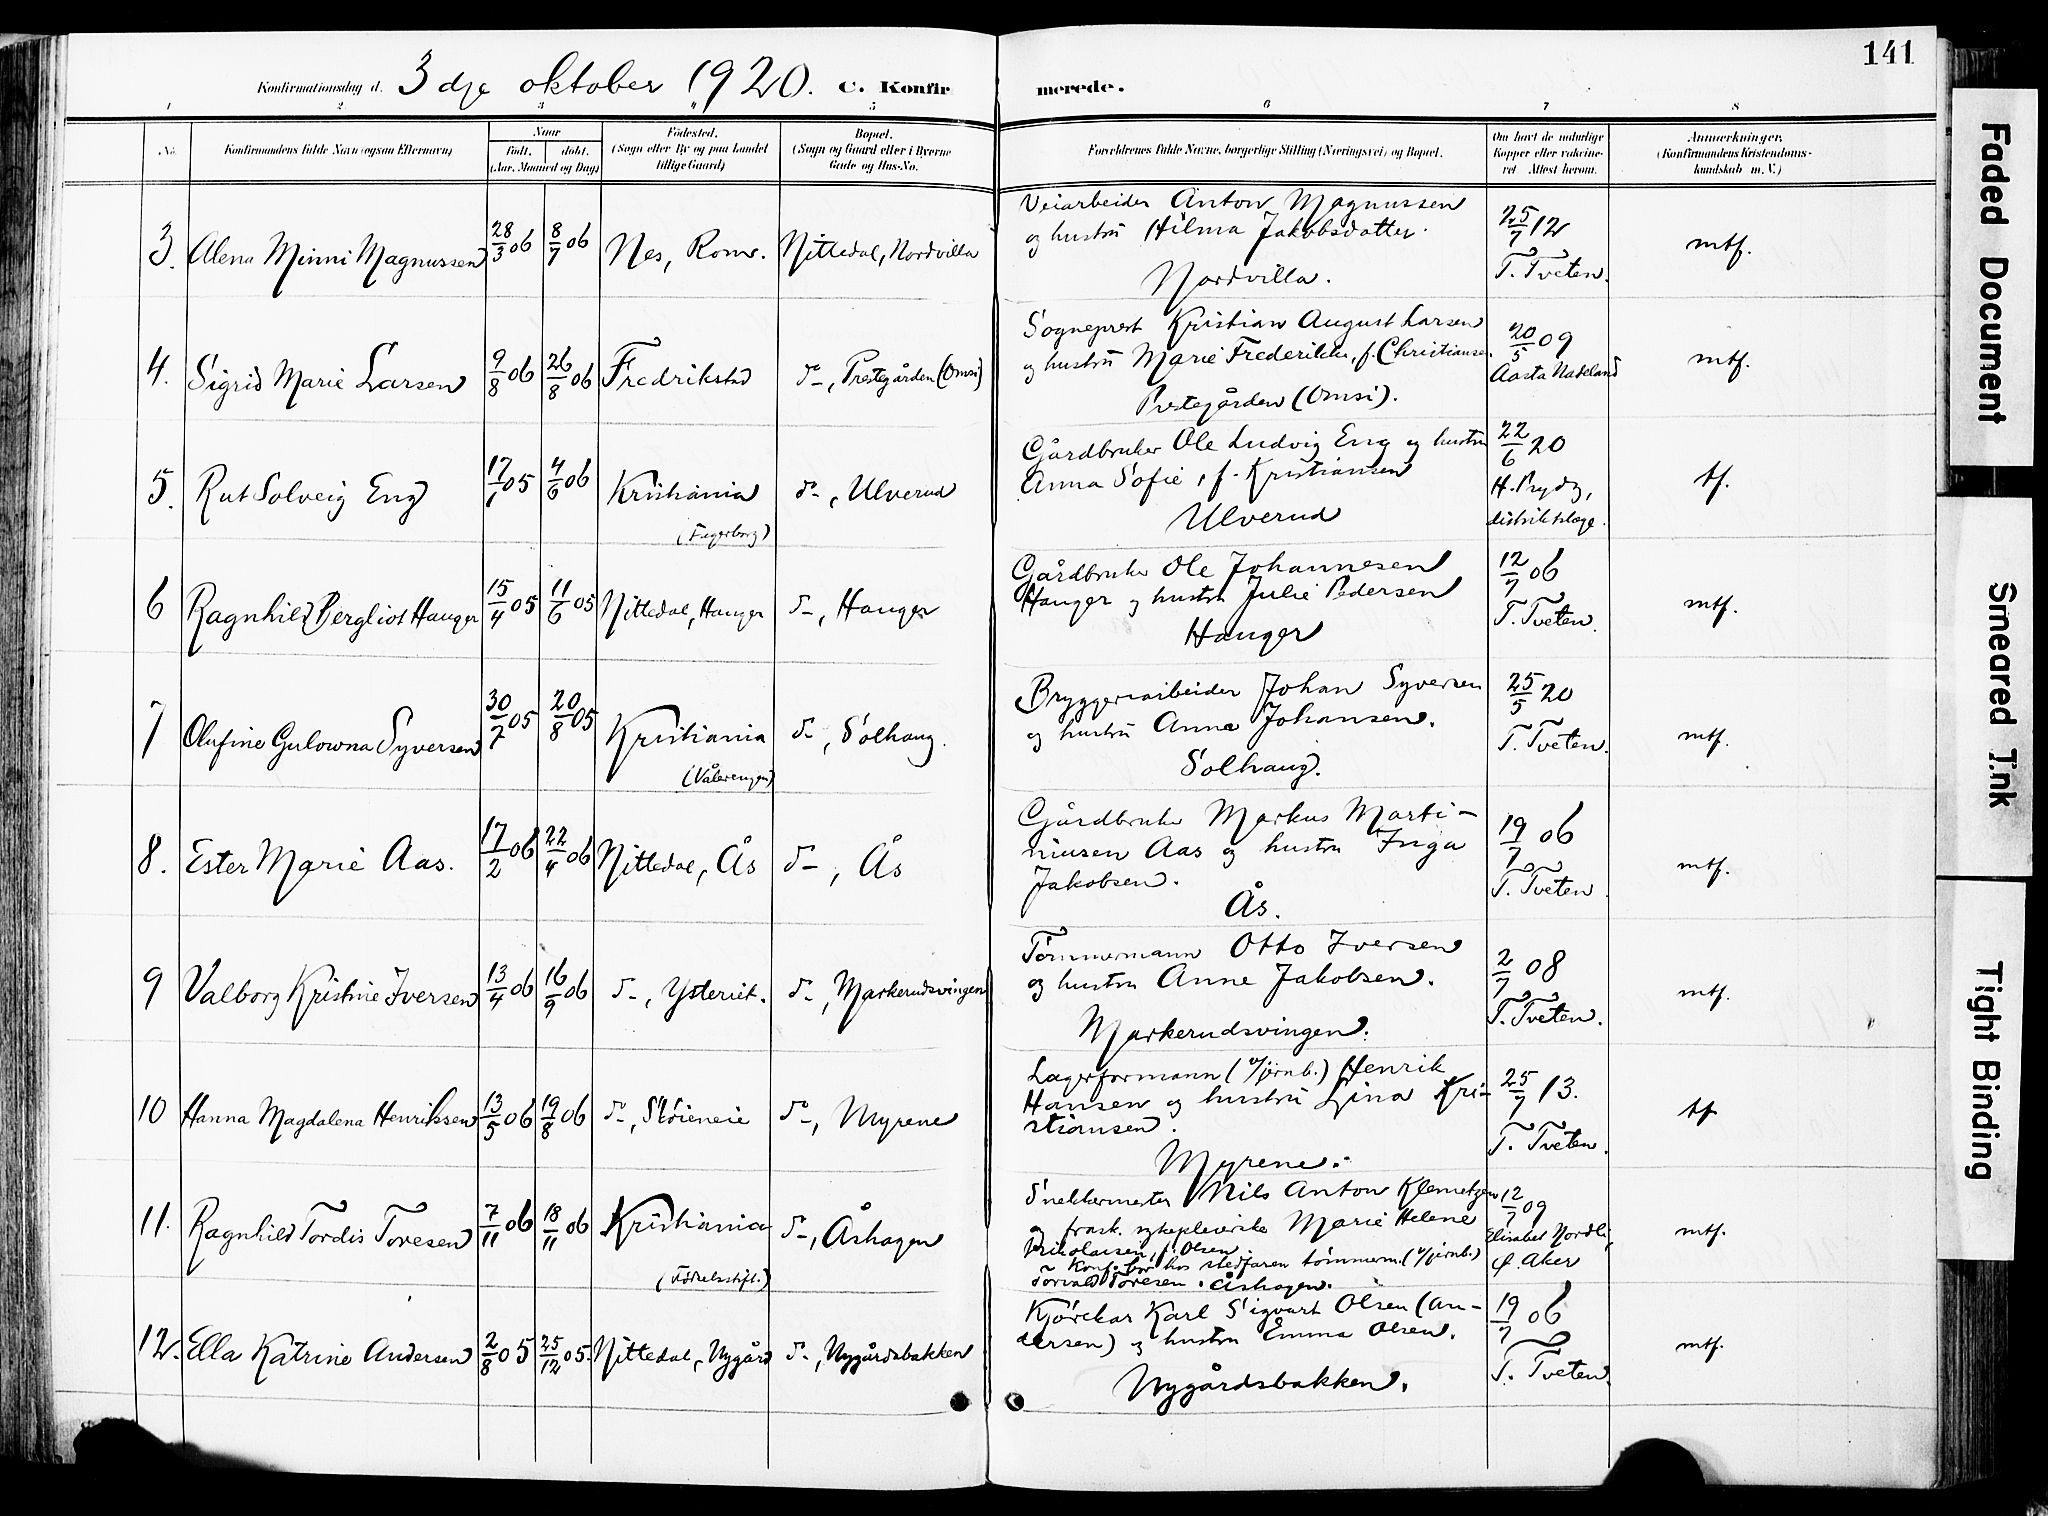 141
Konfirmationsdag d. 3dje oktober 1920. C. Konfirmerede.
1 2 3 4 5 6 7 8
No.
Konfirmandens fulde Navn (ogsaa Efternavn)
Naar
født. døbt.
(Aar, Maaned og Dag)
Fødested.
(Sogn eller By og paa Landet
tillige Gaard)
Bopæl.
(Sogn og Gaard eller i Byerne
Gade og Hus-No.
Forældrenes fulde Navne, borgerlige Stilling (Næringsvei) og Bopæl.
Om havt de naturlige
Kopper eller vakcine-
ret Attest herom.
Anmærkninger.
(Konfirmandens Kristendoms-
kundskab m. V.)
3. Alena Minni Magnussen 28/3 06 8/7 06 Nes, Rome. Nittedal, Nordvilla
Veiarbeider Anton Magnussen
og hustru Hilma Jakobsdatter.
Nordvilla.
25/7 12
T. Tveten.
mtf.
4. Sigrid Marie Larsen 9/8 06 26/8 06 Fredrikstad do-, Prestegården (Omsi)
Sogneprest Kristian August Larsen
og hustru Marie Frederikke, f. Christiansen.
Prestegården (Omsi).
20/5 09
Aasta Nadeland
mtf.
5. Rut Solveig Eng 17/1 05 4/6 06 Kristiania
(Fagerborg)
do-, Ulverud
Gårdbruker Ole Ludvig Eng og hustru
Anna Sofie, f. Kristiansen
Ulverud
22/6 20
H. Prydz,
distriktslæge.
tf.
6 Ragnhild Bergliot Hauger 15/4 05 11/6 05 Nittedal, Hauger do-, Hauger
Gårdbruker Ole Johannesen
Hauger og hustru Julie Pedersen
Hauger
12/7 06
T. Tveten.
mtf.
7 Olufine Gulowna Syversen 30/7 05 20/8 05 Kristiania
(Vålerengen)
do-, Solhaug.
Bryggeriarbeider Johan Syversen
og hustru Anna Johansen.
Solhaug.
25/5 20
T. Tveten.
mtf.
8. Ester Marie Aas. 17/2 06 22/4 06 Nittedal, Ås do-, Ås
Gårdbruker Markus Marti-
niusen Aas og hustru Inga
Jakobsen.
Ås.
19/7 06
T. Tveten.
mtf.
9 Valborg Kristine Iversen 13/4 06 16/9 06 do-, Ysteriet. do-, Markerudsvingen
Tømmermann Otto Iversen
og hustru Anne Jakobsen.
Markerudsvingen.
2/7 08
T. Tveten.
mtf.
10 Hanna Magdalena Henriksen 13/5 06 19/8 06 do-, Støieneie do-, Myrene
Lagerformann (v/jernb.) Henrik
Hansen og hustru Lina Kri-
stiansen.
Myrene.
25/7 13.
T. Tveten.
tf
11. Ragnhild Tordis Toresen 7/11 06 18/11 06 Kristiania
(Fødselsstift.)
do-, Åshagen
Snekkermester Nils Anton Klemetzen
og frask. sykepleierske Marie Helene
Nikolaisen, f. Olsen
Konf. bor hos stedfaren tømmerm. (v/jernb.)
Torvald Toresen. Åshagen.
12/7 09
Elisabet Nordli,
Ø. Aker
mtf.
12. Ella Katrine Andersen 2/8 05 25/12 05. Nittedal, Nygård do-, Nygårdsbakken
Kjørekar Karl Sigvart Olsen (An-
dersen) og hustru Emma Olsen.
Nygårdsbakken.
19/7 06
T. Tveten.
mtf.
Faded Document
Smeared Ink
Tight Binding